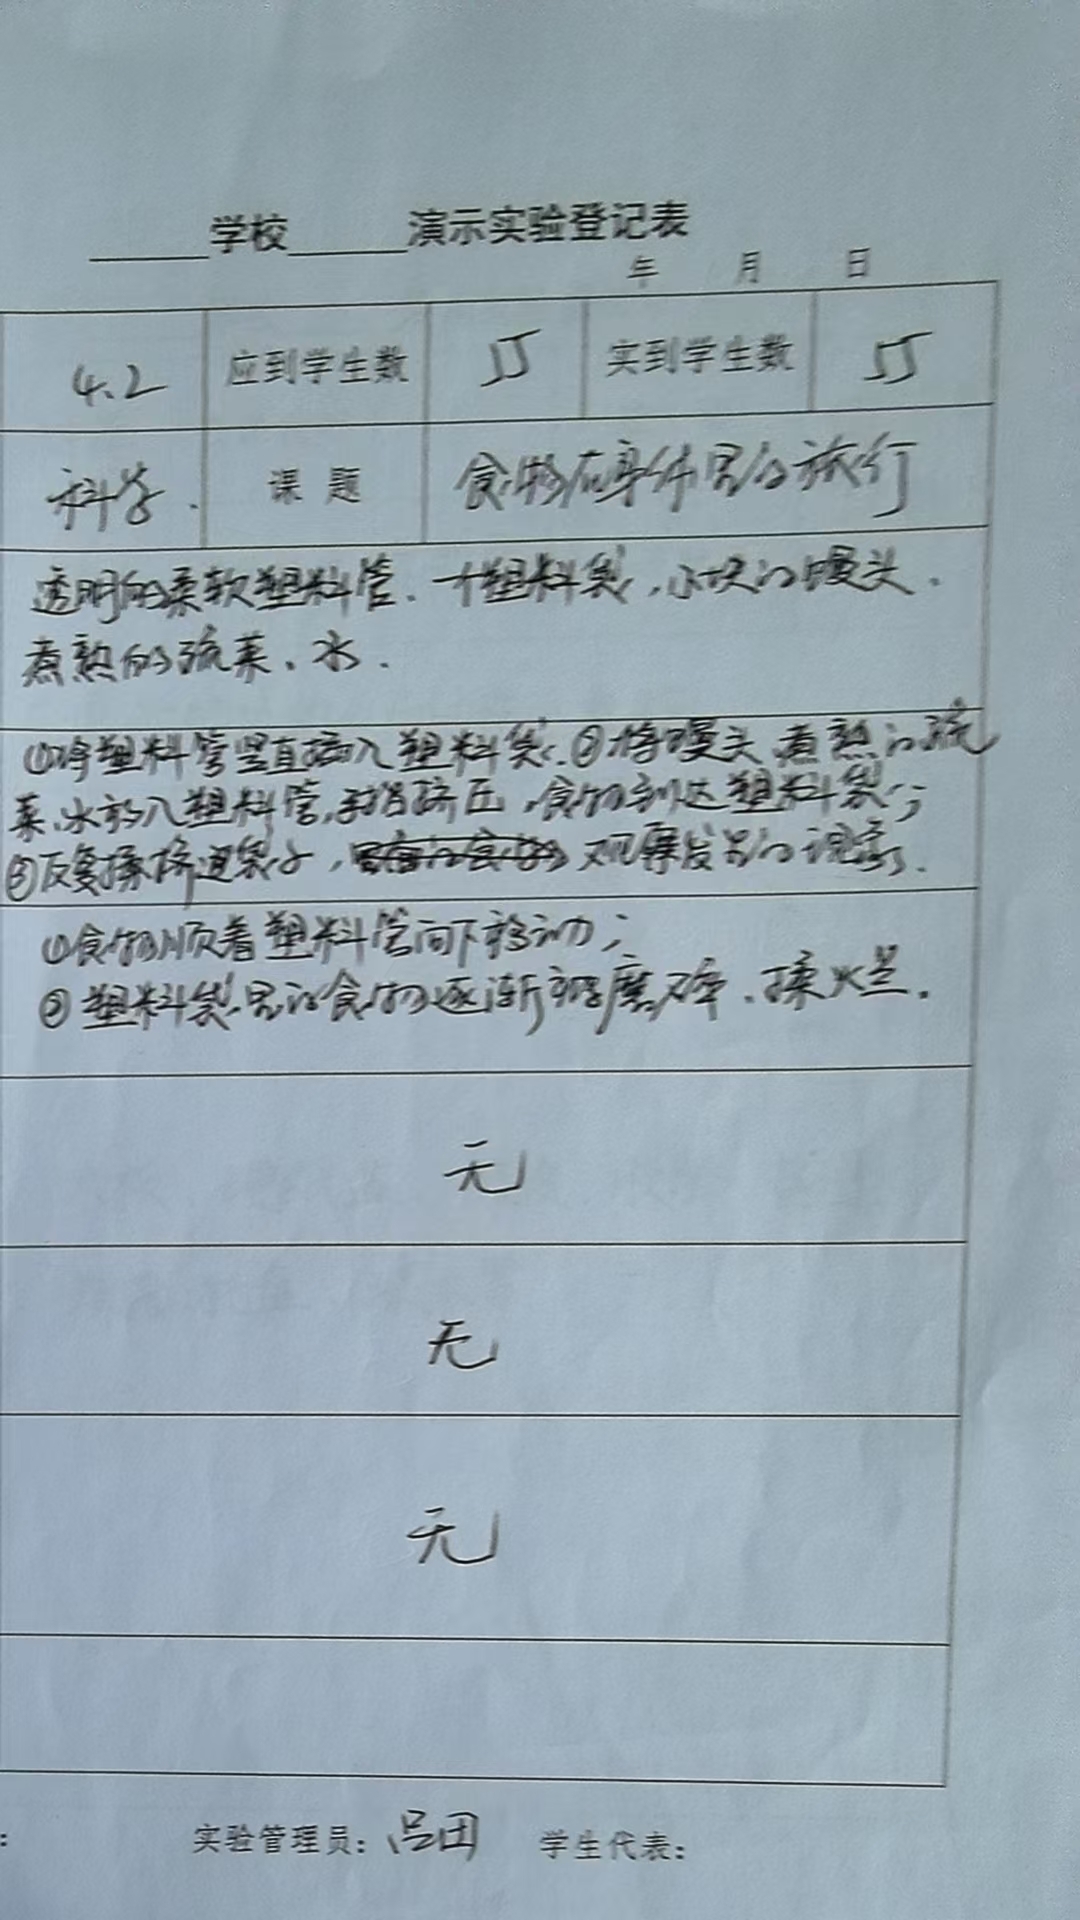 学校 演示实验登记表
年 月 日
4.2 应到学生数 55 实到学生数 55
科学. 课 题 食物在身体里的旅行
透明的柔软塑料管、一个塑料袋、小块的馒头、
煮熟的蔬菜、水.
①将塑料管竖直插入塑料袋.②将馒头、煮熟的蔬
菜、水放入塑料管,手指挤压,食物到达塑料袋;
③反复揉挤这袋子, 观察发生的现象.
①食物顺着塑料管向下移动;
②塑料袋里的食物逐渐被磨碎、揉烂.
无
无
无
: 实验管理员: 吕田 学生代表: